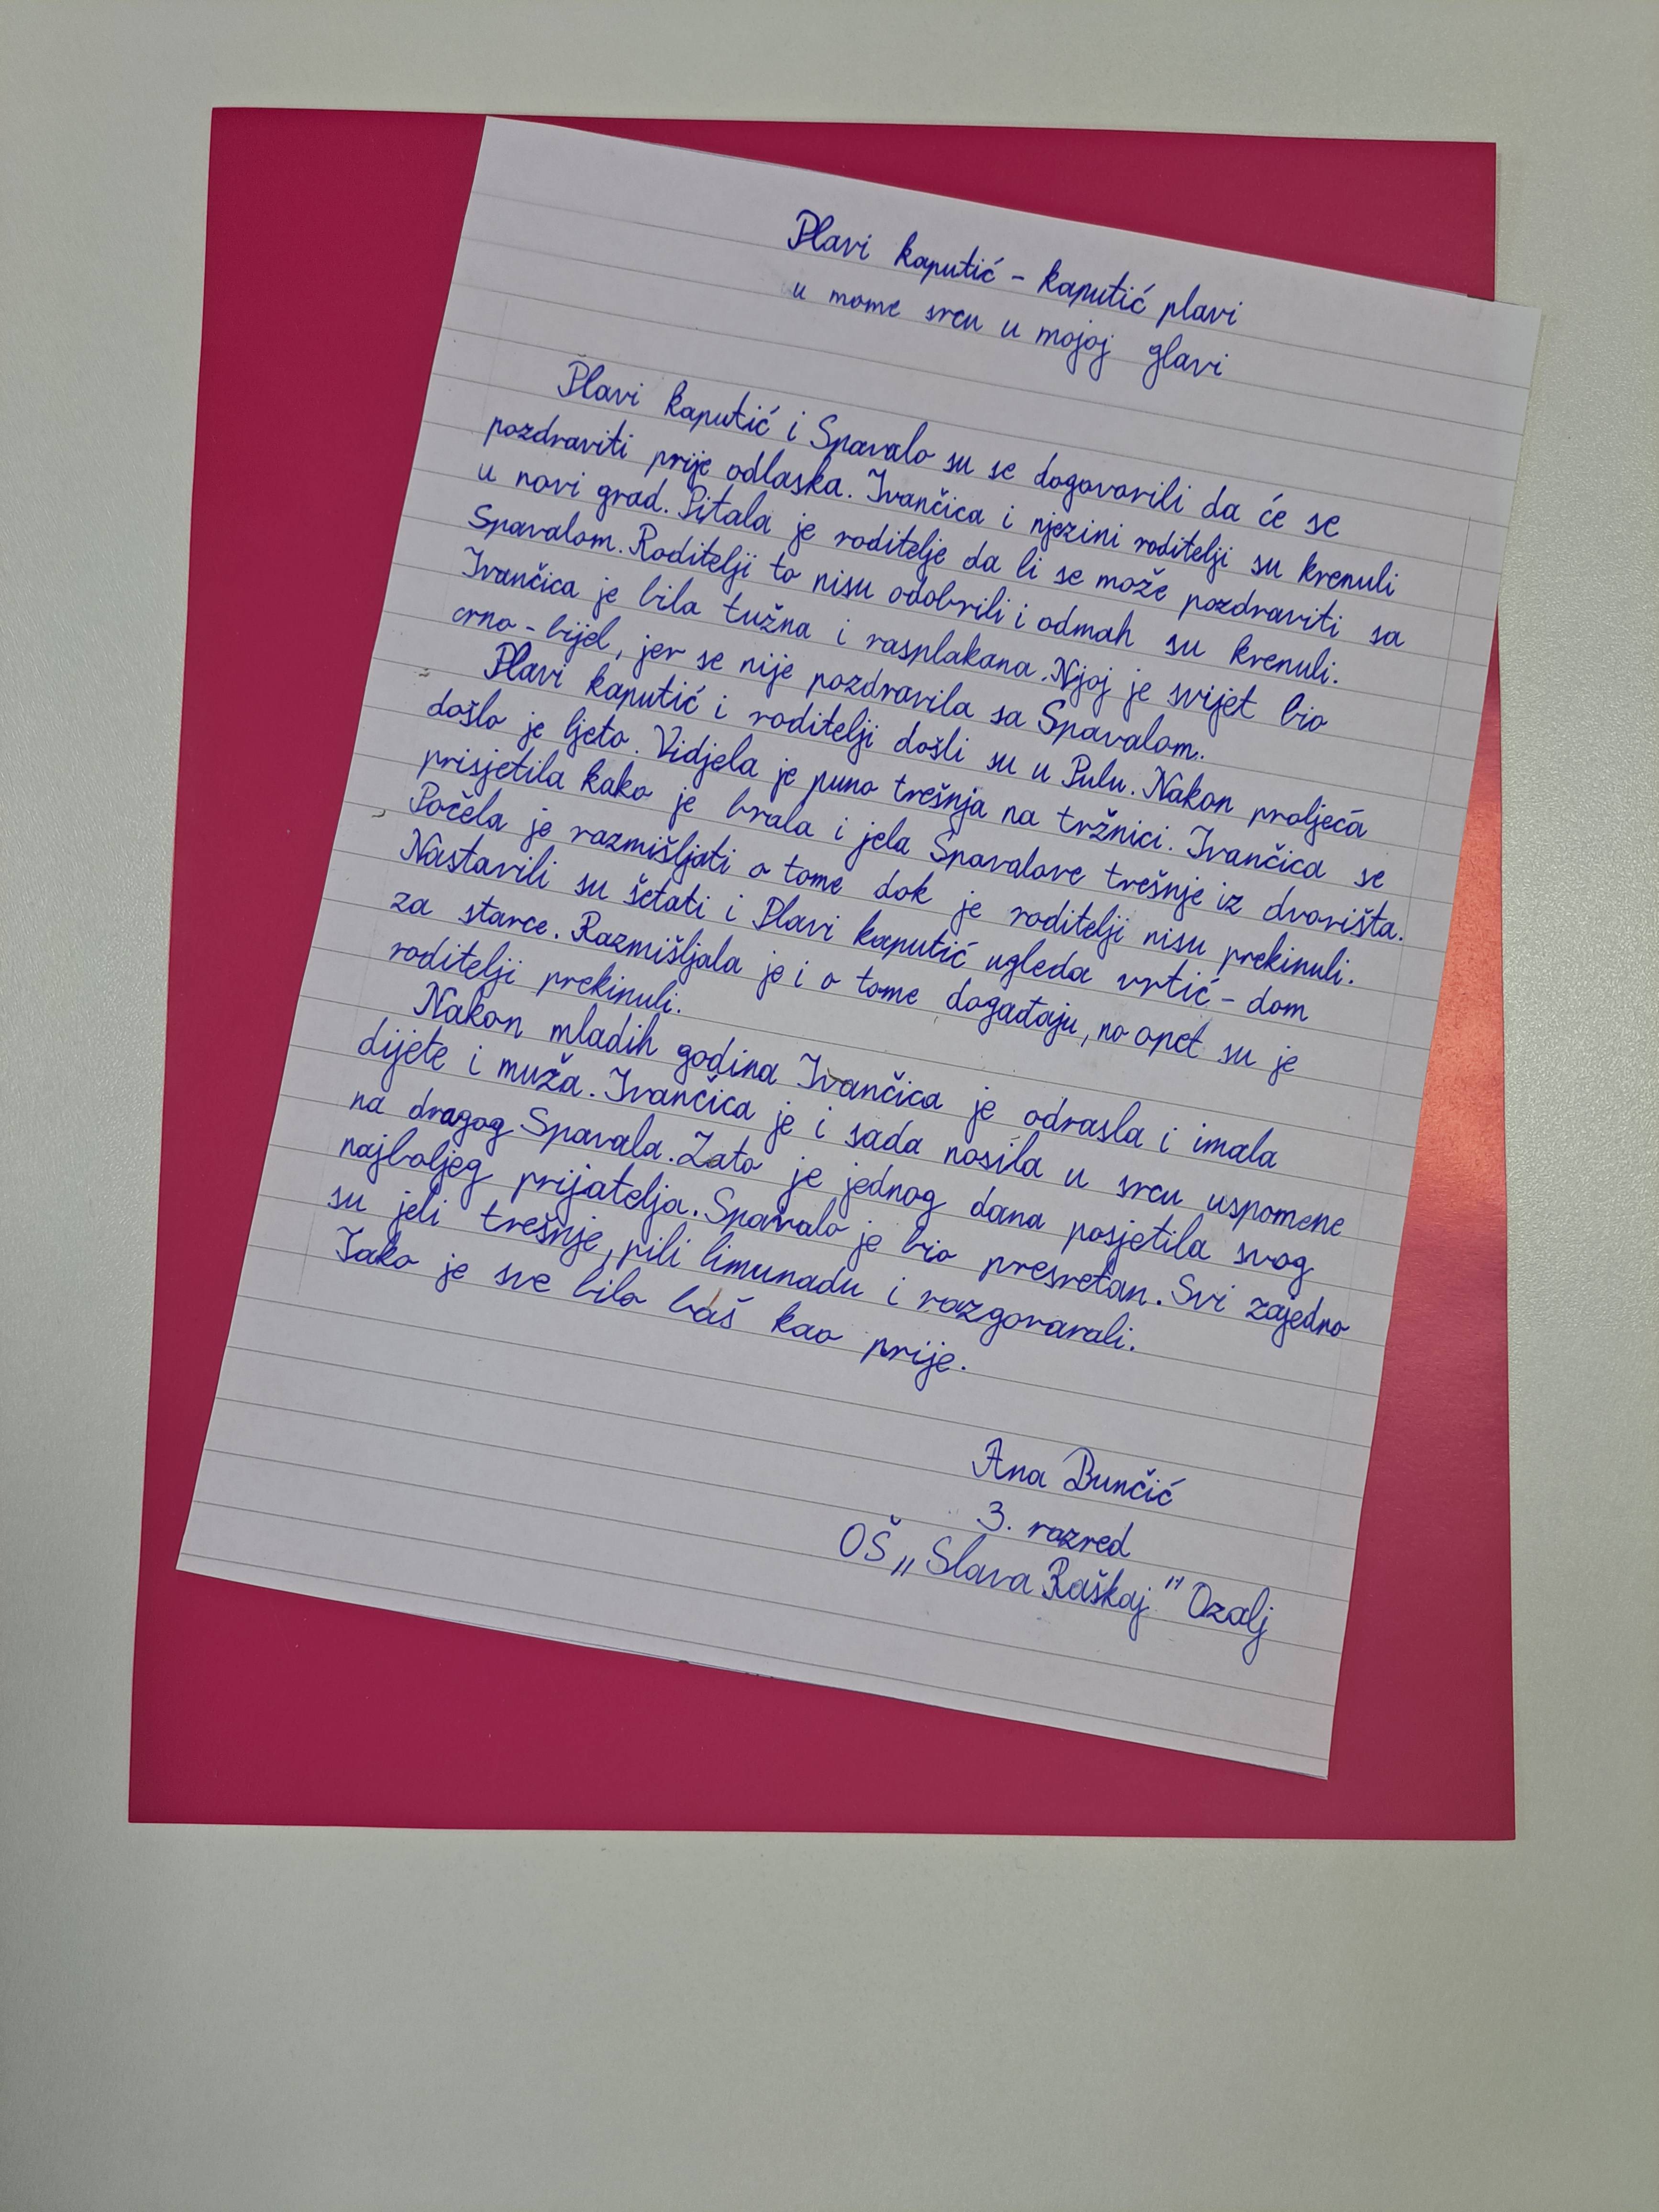 Plavi kaputić - kaputić plavi
u mome srcu u mojoj glavi
Plavi kaputić i Spavalo su se dogovorili da će se
pozdraviti prije odlaska. Ivančica i njezini roditelji su krenuli
u novi grad. Pitala je roditelje da li se može pozdraviti sa
Spavalom. Roditelji to nisu odobrili i odmah su krenuli.
Ivančica je bila tužna i rasplakana. Njoj je svijet bio
crno-bijel, jer se nije pozdravila sa Spavalom.
Plavi kaputić i roditelji došli su u Pulu. Nakon proljeća
došlo je ljeto. Vidjela je puno trešnja na tržnici. Ivančica se
prisjetila kako je brala i jela Spavalove trešnje iz dvorišta.
Počela je razmišljati o tome dok je roditelji nisu prekinuli.
Nastavili su šetati i Plavi kaputić ugleda vrtić - dom
za starce. Razmišljala je i o tome događaju, no opet su je
roditelji prekinuli.
Nakon mladih godina Ivančica je odrasla i imala
dijete i muža. Ivančica je i sada nosila u srcu uspomene
na dragog Spavala. Zato je jednog dana posjetila svog
najboljeg prijatelja. Spavalo je bio presretan. Svi zajedno
su jeli trešnje, pili limunadu i razgovarali.
Tako je sve bilo baš kao prije.
Ana Bunčić
3. razred
OŠ „Slava Raškaj" Ozalj